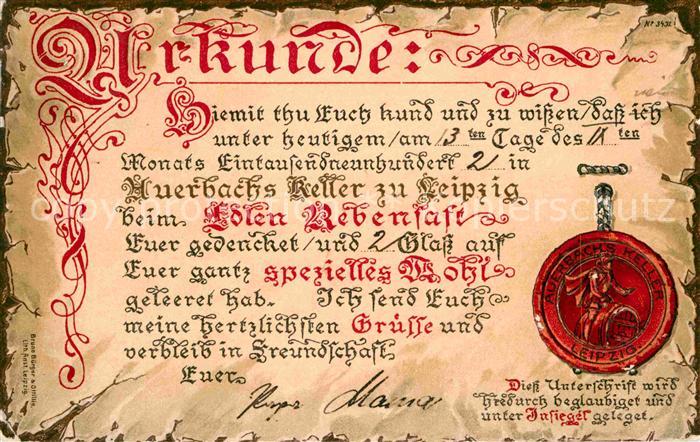 Nº 3431
Urkunde:
Hiemit thu Euch kund und zu wißen/daß ich
unter heutigem/am 13ten Tage des IXten
Monats Eintausendneunhundert 21 in
Auerbachs Keller zu Leipzig
beim Edlen Rebensaft
Euer gedencket/und 2 Glaß auf
Euer gantz spezielles Wohl
geleeret hab. Ich send Euch
meine hertzlichsten Grüsse und
verbleib in Freundschaft
Euer
Papa Mama
AUERBACHS KELLER
LEIPZIG
Dieß Unterschrift wird
hiedurch beglaubiget und
unter Insiegel geleget.
Bruno Bürger & Ottillie,
Lith. Anst. Leipzig.